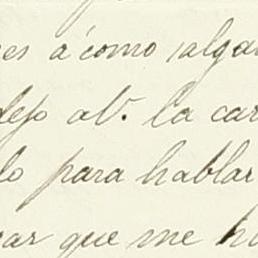 es á como salga
dejo al v. la car
lo para hablar
ar que me h